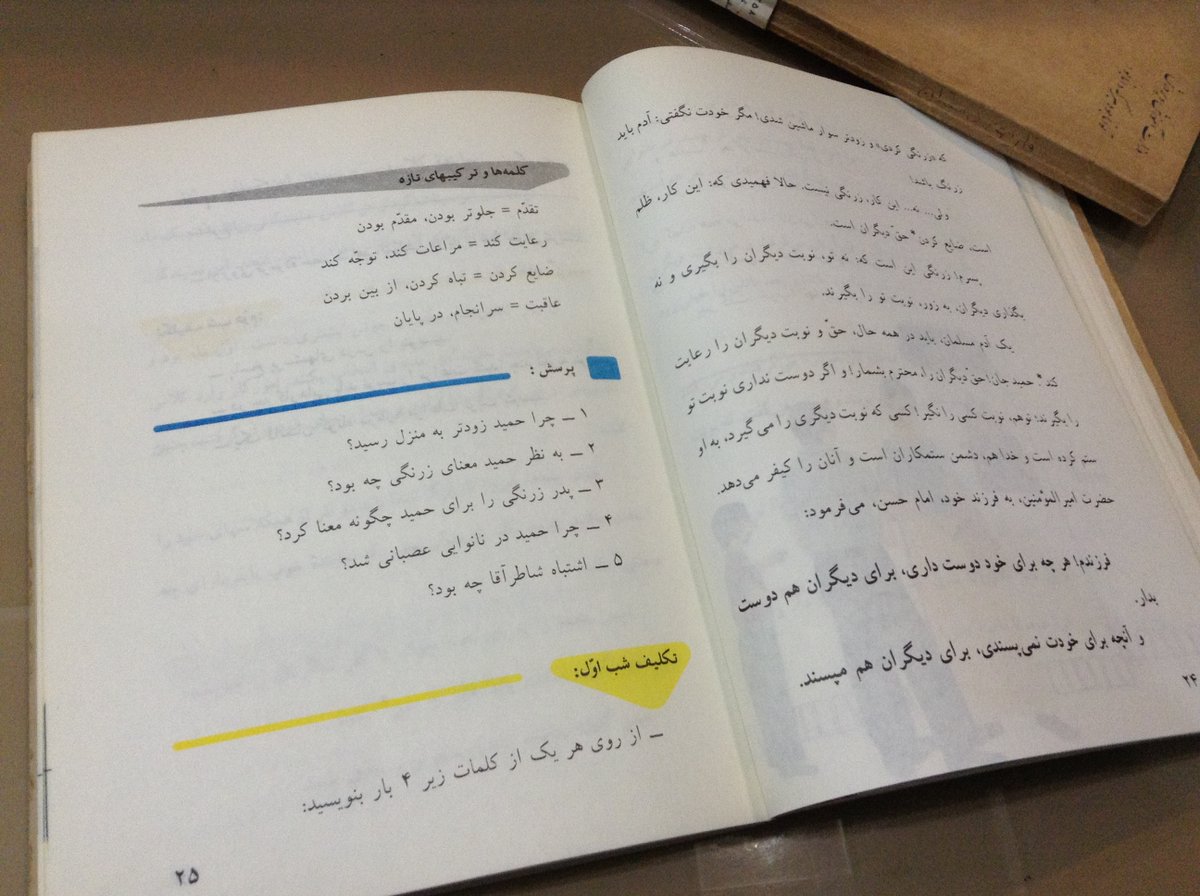 که «زرنگی کردی» و زودتر سوار ماشین شدی! مگر خودت نگفتی: آدم باید
زرنگ باشد!
ولی... نه... این کار، زرنگی نیست. حالا فهمیدی که: این کار، ظلم
است، ضایع کردن* حقّ دیگران است.
پسرم! زرنگی این است که: نه تو، نوبت دیگران را بگیری و نه
بگذاری دیگران، به زور، نوبت تو را بگیرند.
یک آدم مسلمان، باید در همه حال، حقّ و نوبت دیگران را رعایت
کند*. حمید جان! حقّ دیگران را، محترم بشمار! و اگر دوست نداری نوبت تو
را بگیرند؛ تو هم، نوبت کسی را نگیر! کسی که نوبت دیگری را می‌گیرد، به او
ستم کرده است و خدا هم، دشمن ستمکاران است و آنان را کیفر می‌دهد.
حضرت امیرالمؤمنین، به فرزند خود، امام حسن، می‌فرمود:
فرزندم! هر چه برای خود دوست داری، برای دیگران هم دوست
بدار.
و آنچه برای خودت نمی‌پسندی، برای دیگران هم مپسند.
۲۴
کلمه‌ها و ترکیبهای تازه
تقدّم = جلوتر بودن، مقدّم بودن
رعایت کند = مراعات کند، توجّه کند
ضایع کردن = تباه کردن، از بین بردن
عاقبت = سرانجام، در پایان
پرسش:
۱ ــ چرا حمید زودتر به منزل رسید؟
۲ ــ به نظر حمید معنای زرنگی چه بود؟
۳ ــ پدر زرنگی را برای حمید چگونه معنا کرد؟
۴ ــ چرا حمید در نانوایی عصبانی شد؟
۵ ــ اشتباه شاطرآقا چه بود؟
تکلیف شب اوّل:
ــ از روی هر یک از کلمات زیر ۴ بار بنویسید:
۲۵